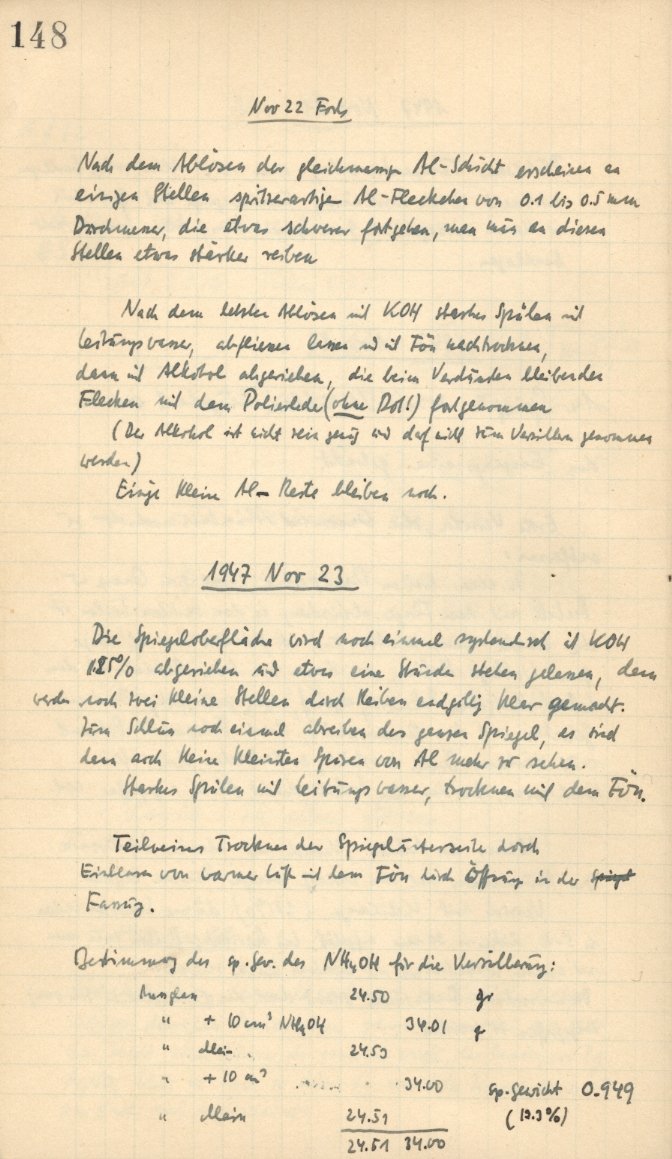 148
Nov 22 Forts
Nach dem Ablösen der gleichmässigen Al-Schicht erscheinen an
einigen Stellen spritzerartige Al-Fleckchen von 0.1 bis 0.5 mm
Durchmesser, die etwas schwerer fortgehen, man muss an diesen
Stellen etwas stärker reiben
Nach dem letzten Ablösen mit KOH starkes Spülen mit
Leitungswasser, abfliessen lassen und mit Fön nachtrocknen,
dann mit Alkohol abgerieben, die beim Verdunsten bleibenden
Flecken mit dem Polierleder (ohne Rot!) fortgenommen
(Der Alkohol ist nicht rein genug und darf nicht zum Versilbern genommen
werden)
Einige kleine Al-Reste bleiben noch.
1947 Nov 23
Die Spiegeloberfläche wird noch einmal systematisch mit KOH
abgerieben und etwas eine Stunde stehen gelassen, dann
werden noch zwei kleine Stellen durch Reiben endgültig klar gemacht.
Zum Schluss noch einmal abreiben des ganzen Spiegel, es sind
dann auch keine kleinsten Spuren von Al mehr zu sehen.
Starkes Spülen mit Leitungswasser, trocknen mit dem Fön.
Teilweises Trocknen der Spiegelunterseite durch
Einblasen von warmer Luft mit dem Fön durch Öffnung in der Spiegel
Fassung.
Bestimmung des sp. Gew. des NH4OH für die Versilberung:
24.50 gr
" + 10 cm³ NH4OH 34.01 gr
" allein 24.53
" + 10 cm³ 34.00 sp. Gewicht 0.949
" allein 24.51 (13.3%)
24.51 34.00